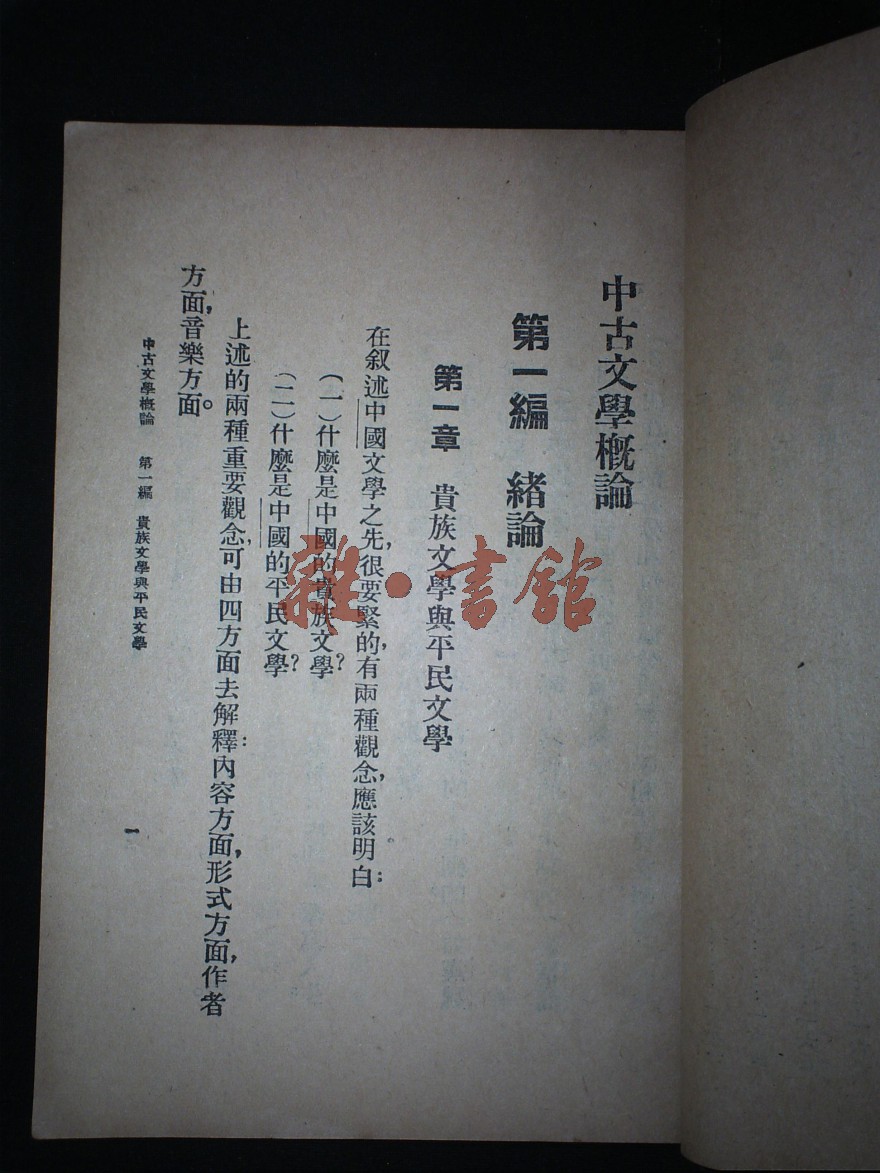 中古文學概論
第一編 緒論
第一章 貴族文學與平民文學
在叙述中國文學之先，很要緊的，有兩種觀念，應該明白：
（一）什麼是中國的貴族文學？
（二）什麼是中國的平民文學？
上述的兩種重要觀念，可由四方面去解釋：內容方面，形式方面，作者
方面，音樂方面。
中古文學概論 第一編 貴族文學與平民文學 一
雜·書舘